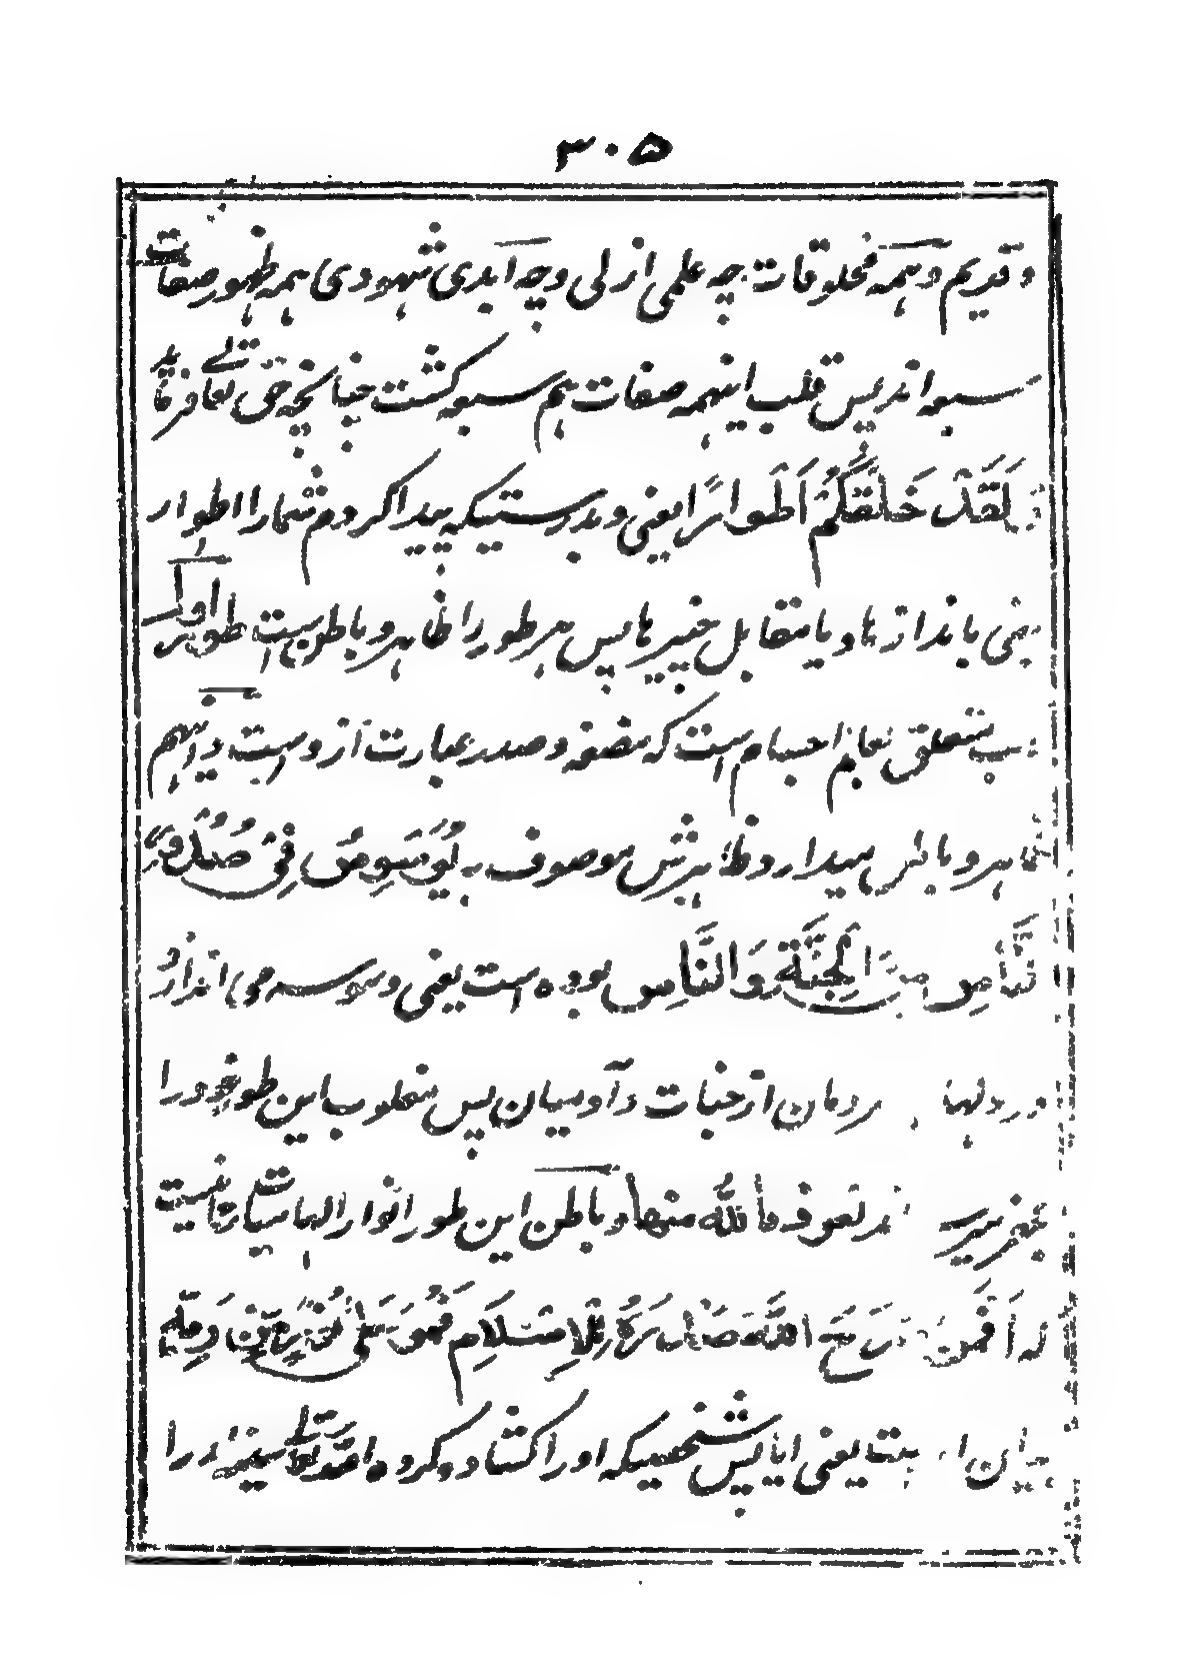 ۳۰۵
و قدیم و همه مخلوقات چه علمی ازلی و چه ابدی شهودی همه ظهور صفات
سبعه اند پس قلب اینهمه صفات هم سبعه گشت چنانچه حق تعالے فرماید
لَقَدْ خَلَقَكُمْ اَطْوَارًا یعنی و بدرستیکه پیدا کردم شمارا اطوار
یعنی باندازها و یا متقابل خبرها پس هر طور را ظاهر و باطن ست طور اول
متعلق بعالم اجسام است که مضغه و صدر عبارت از وست و اینهم
ظاهر و باطن میدارد ظاهرش موصوف به یُوَسْوِسُ فِیْ صُدُوْرِ
النَّاسِ مِنَ الْجِنَّةِ وَالنَّاسِ بوده است یعنی وسوسه می اندازد
در دلها مردمان از جنات و آدمیان پس مغلوب این طور خود را
نعوذ بالله منها و باطن این طور انوار الهامات
اَفَمَنْ شَرَحَ اللّٰهُ صَدْرَهٗ لِلْاِسْلَامِ فَهُوَ عَلٰی نُوْرٍ مِّنْ رَّبِّهٖ
یعنی ایا پس شخصیکه او را کشاده کرده الله تعالے سینه را